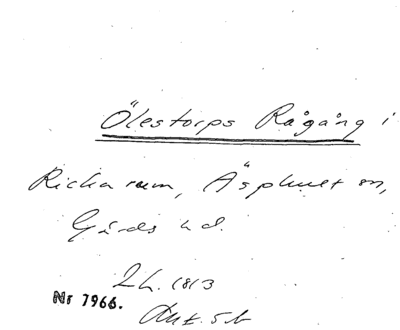 Ölestorps Rågång i
Rickarum, Äsphult sn,
Gärds hd.
Lh. 1813
Nr 7966.
Akt. 5b